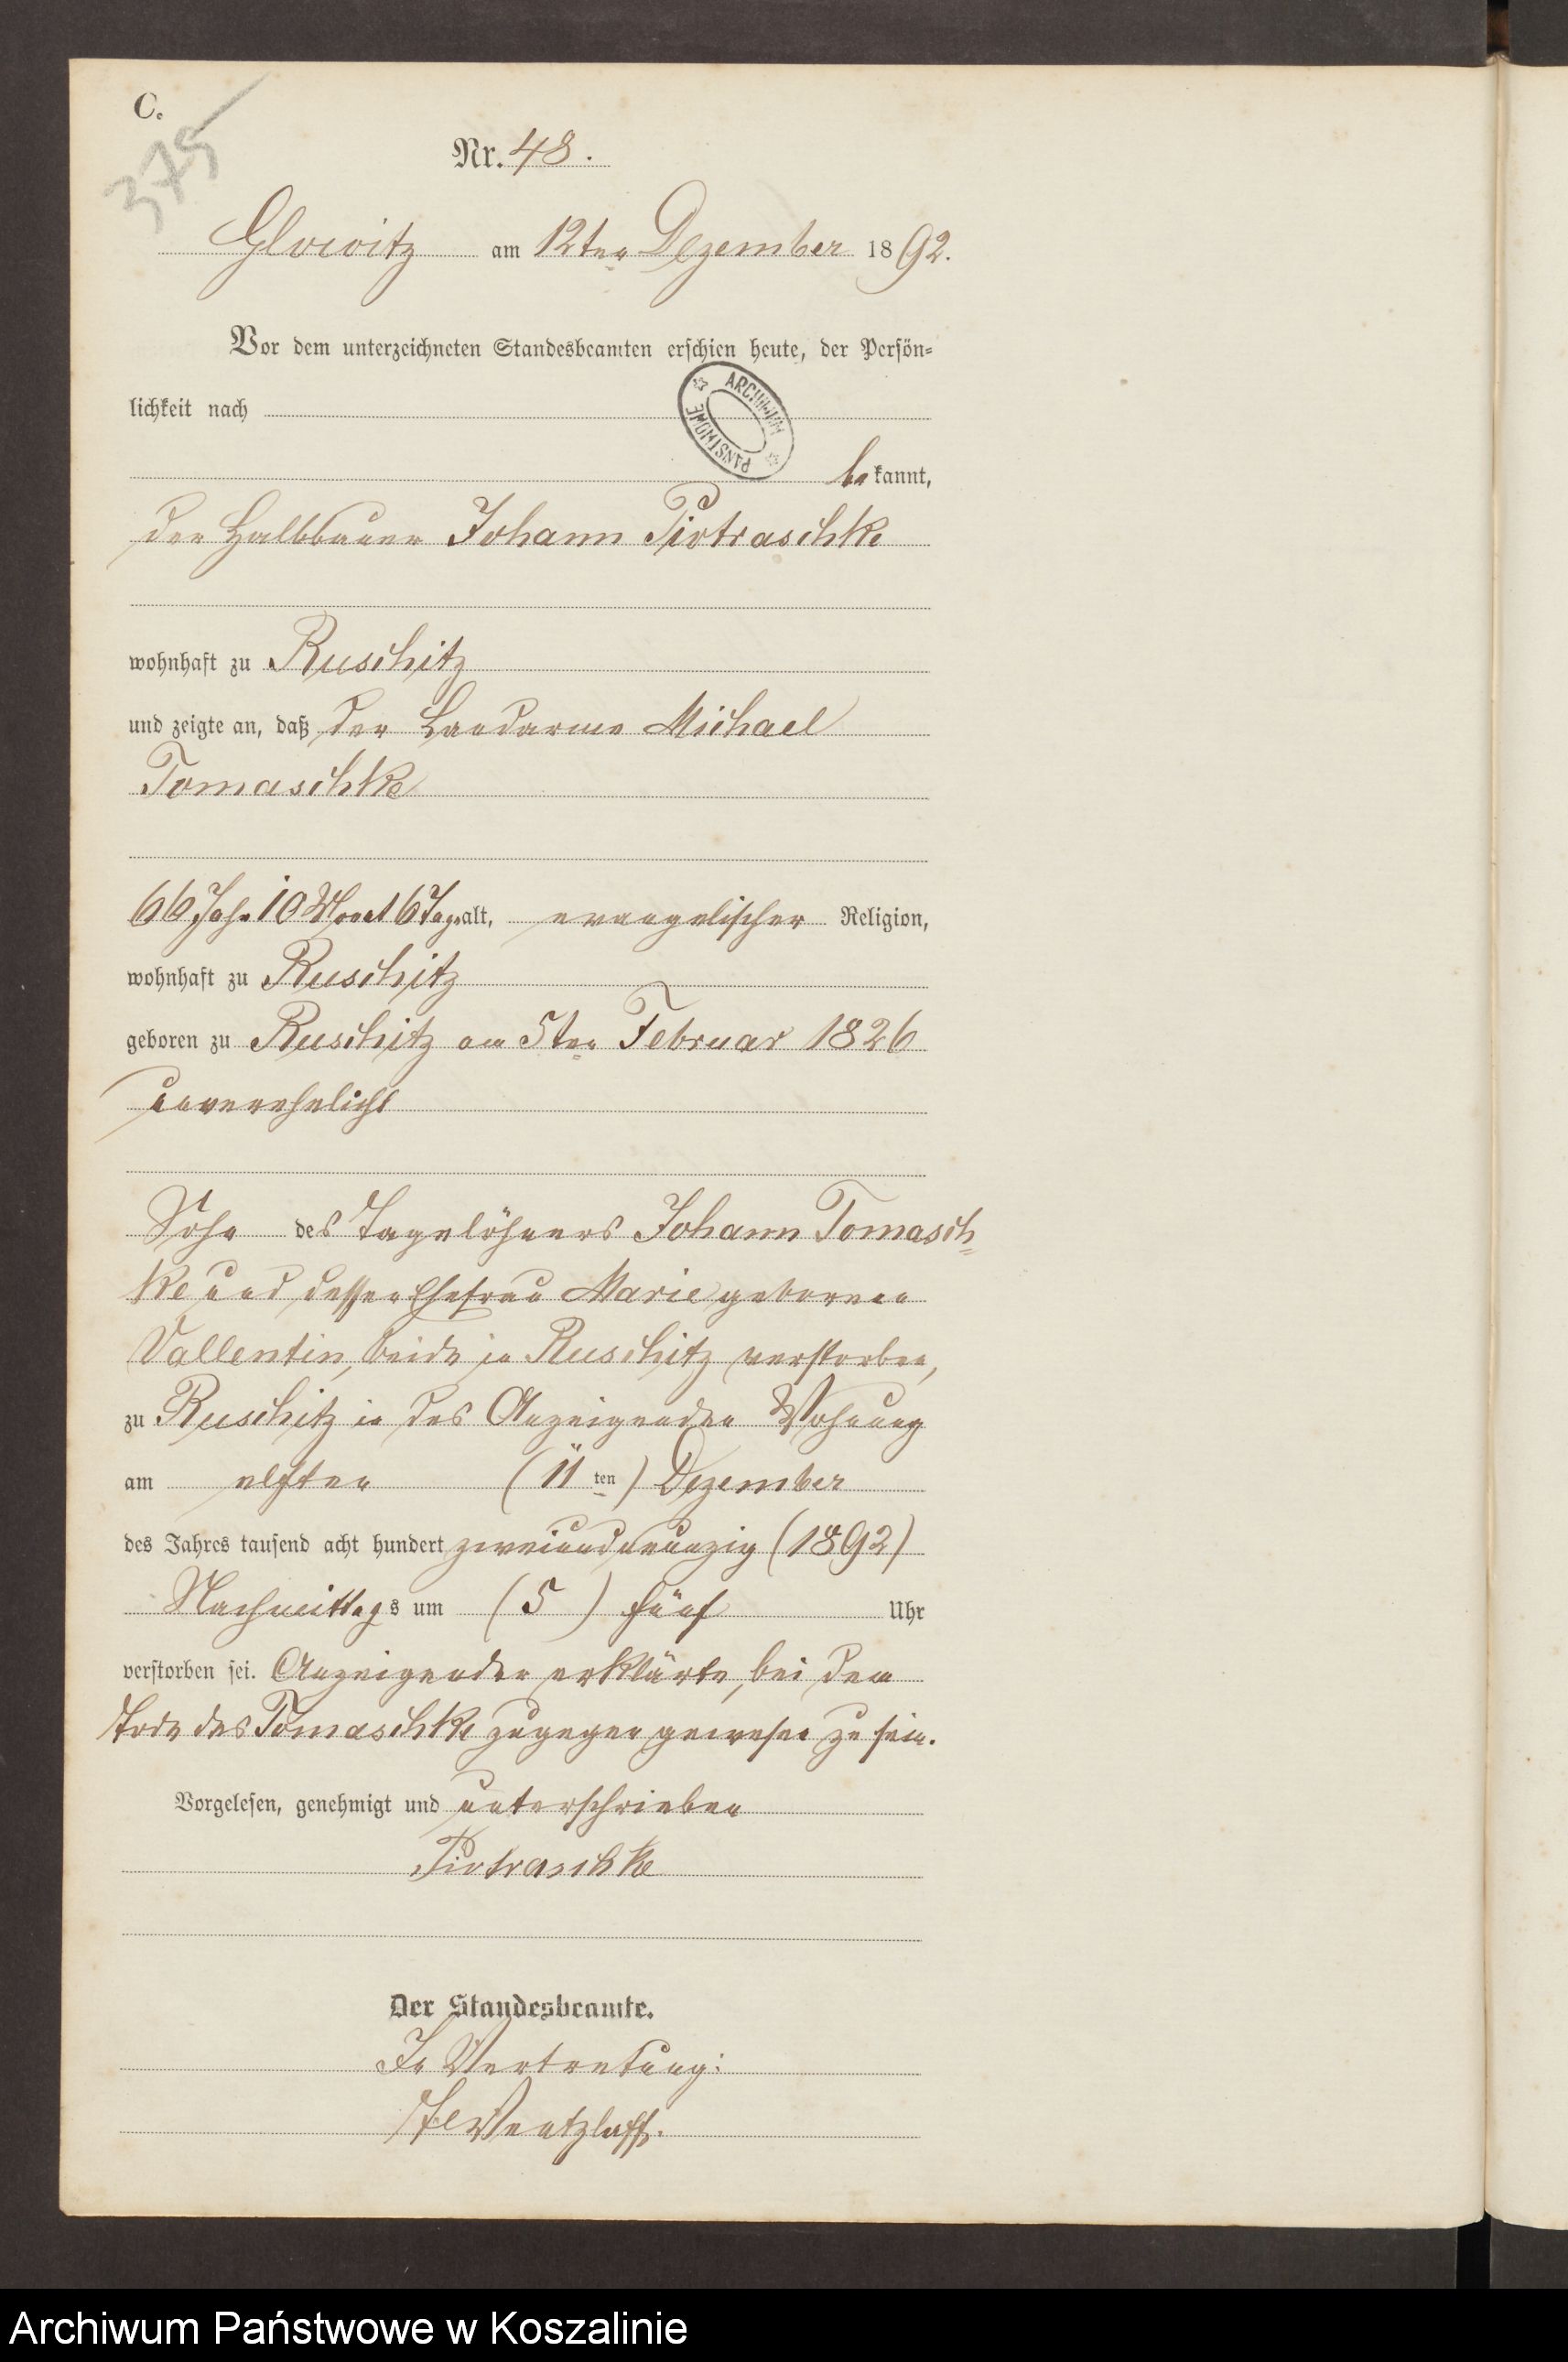 C.
375
Nr. 48.
Glowitz am 12ten Dezember 1892.
Vor dem unterzeichneten Standesbeamten erschien heute, der Persön-
lichkeit nach
ARCHIWUM PAŃSTWOWE
bekannt,
der Halbbauer Johann Piotraschke
wohnhaft zu Ruschitz
und zeigte an, daß der Landarme Michael
Tomaschke
66 Jahr 10 Monat 6 Tage alt, evangelischer Religion,
wohnhaft zu Ruschitz
geboren zu Ruschitz am 5ten Februar 1826
unverehelicht
Sohn des Tagelöhners Johann Tomasch-
ke und dessen Ehefrau Marie geborenen
Vallentin, beide in Ruschitz verstorben,
zu Ruschitz in des Anzeigenden Wohnung
am elften (11ten) Dezember
des Jahres tausend acht hundert zweiundneunzig (1892)
Nachmittags um (5) fünf Uhr
verstorben sei. Anzeigender erklärte, bei dem
Tode des Tomaschke zugegen gewesen zu sein.
Vorgelesen, genehmigt und unterschrieben
Piotraschke
Der Standesbeamte.
In Vertretung:
Wentzlaff.
Archiwum Państwowe w Koszalinie